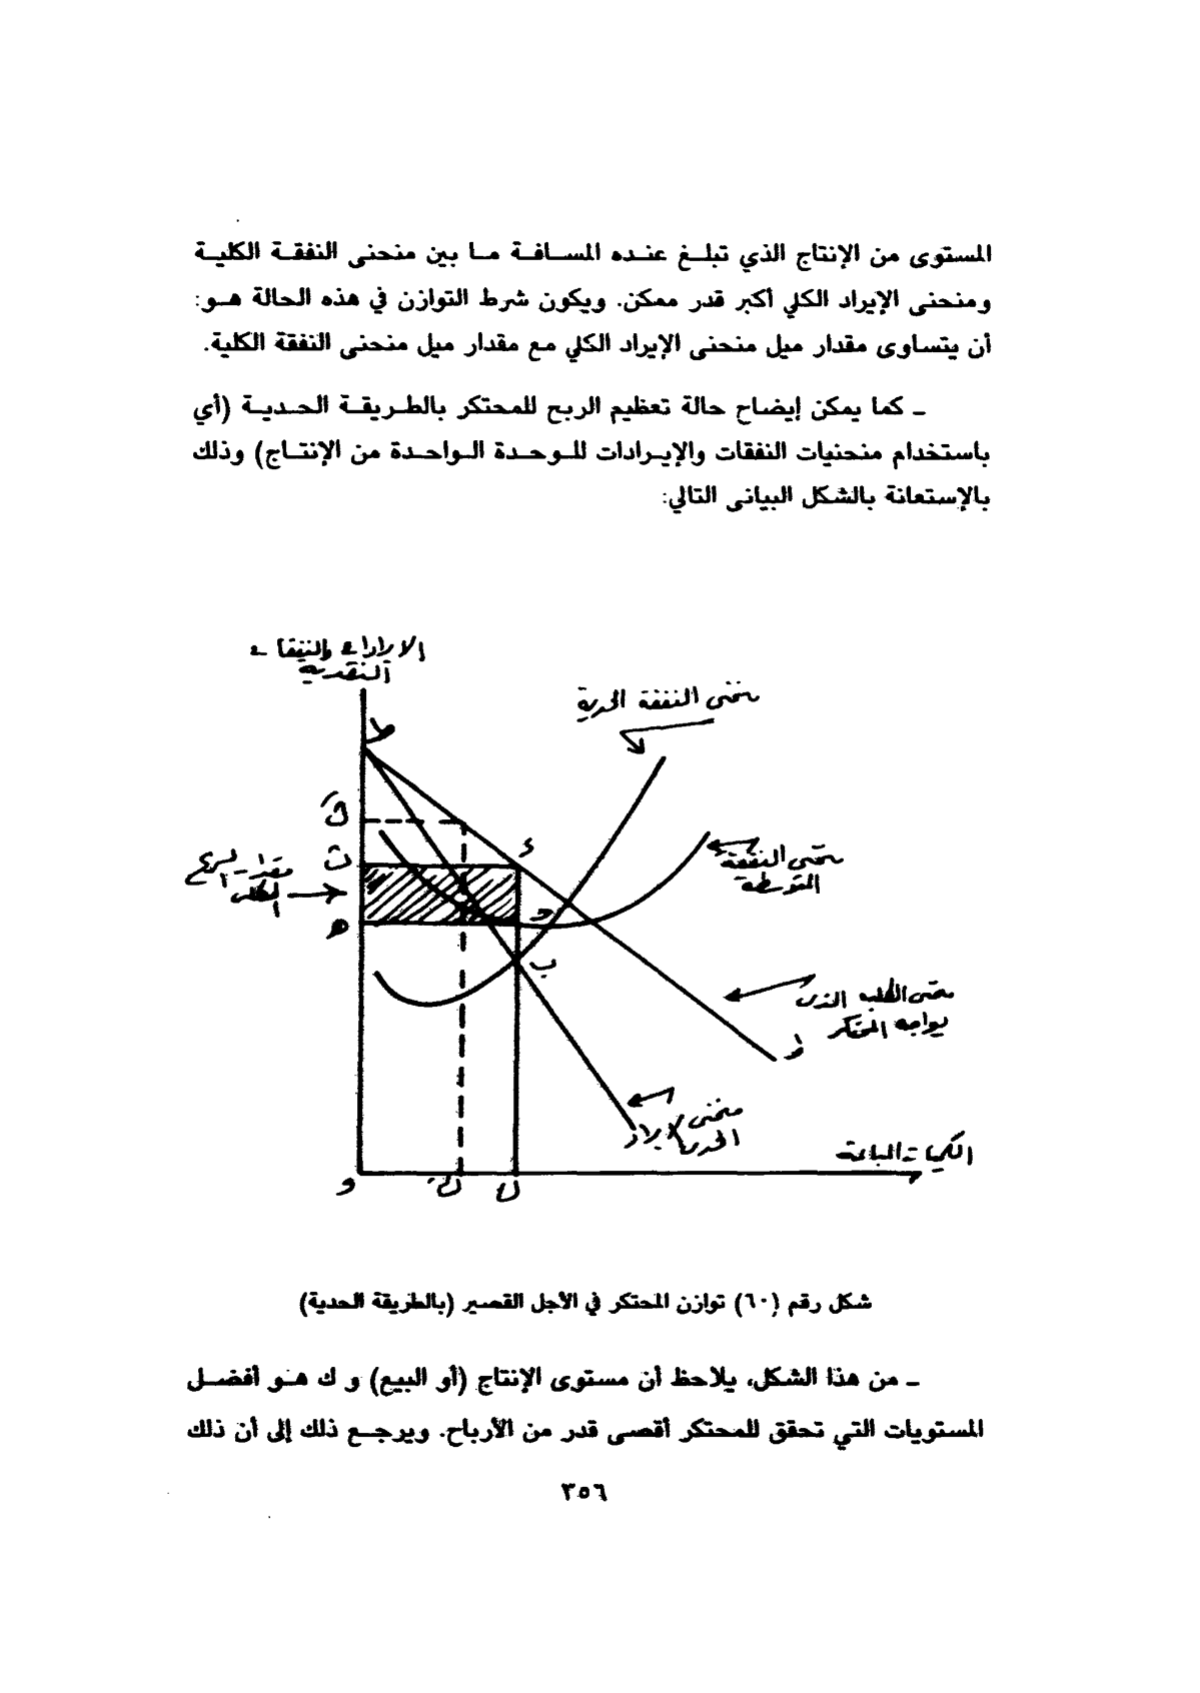 المستوى من الإنتاج الذي تبلغ عنده المسافة ما بين منحنى النفقة الكلية
ومنحنى الإيراد الكلي أكبر قدر ممكن. ويكون شرط التوازن في هذه الحالة هو:
أن يتساوى مقدار ميل منحنى الإيراد الكلي مع مقدار ميل منحنى النفقة الكلية.
ـ كما يمكن إيضاح حالة تعظيم الربح للمحتكر بالطريقة الحدية (أي
باستخدام منحنيات النفقات والإيرادات للوحدة الواحدة من الإنتاج) وذلك
بالإستعانة بالشكل البيانى التالي:
الايرادات والنفقات
النقدية
منحنى النفقة الحدية
ط
ثَ
ث
ء
مقدار الربح
الكلى
منحنى النفقة
المتوسطة
هـ
حـ
ب
منحنى الطلب الذى
يواجه المحتكر
ط
منحنى الايراد
الحدى
الكميات المباعة
و
كَ
ك
شكل رقم (٦٠) توازن المحتكر في الأجل القصير (بالطريقة الحدية)
ـ من هذا الشكل، يلاحظ أن مستوى الإنتاج (أو البيع) و ك هو أفضل
المستويات التي تحقق للمحتكر أقصى قدر من الأرباح. ويرجع ذلك إلى أن ذلك
٣٥٦